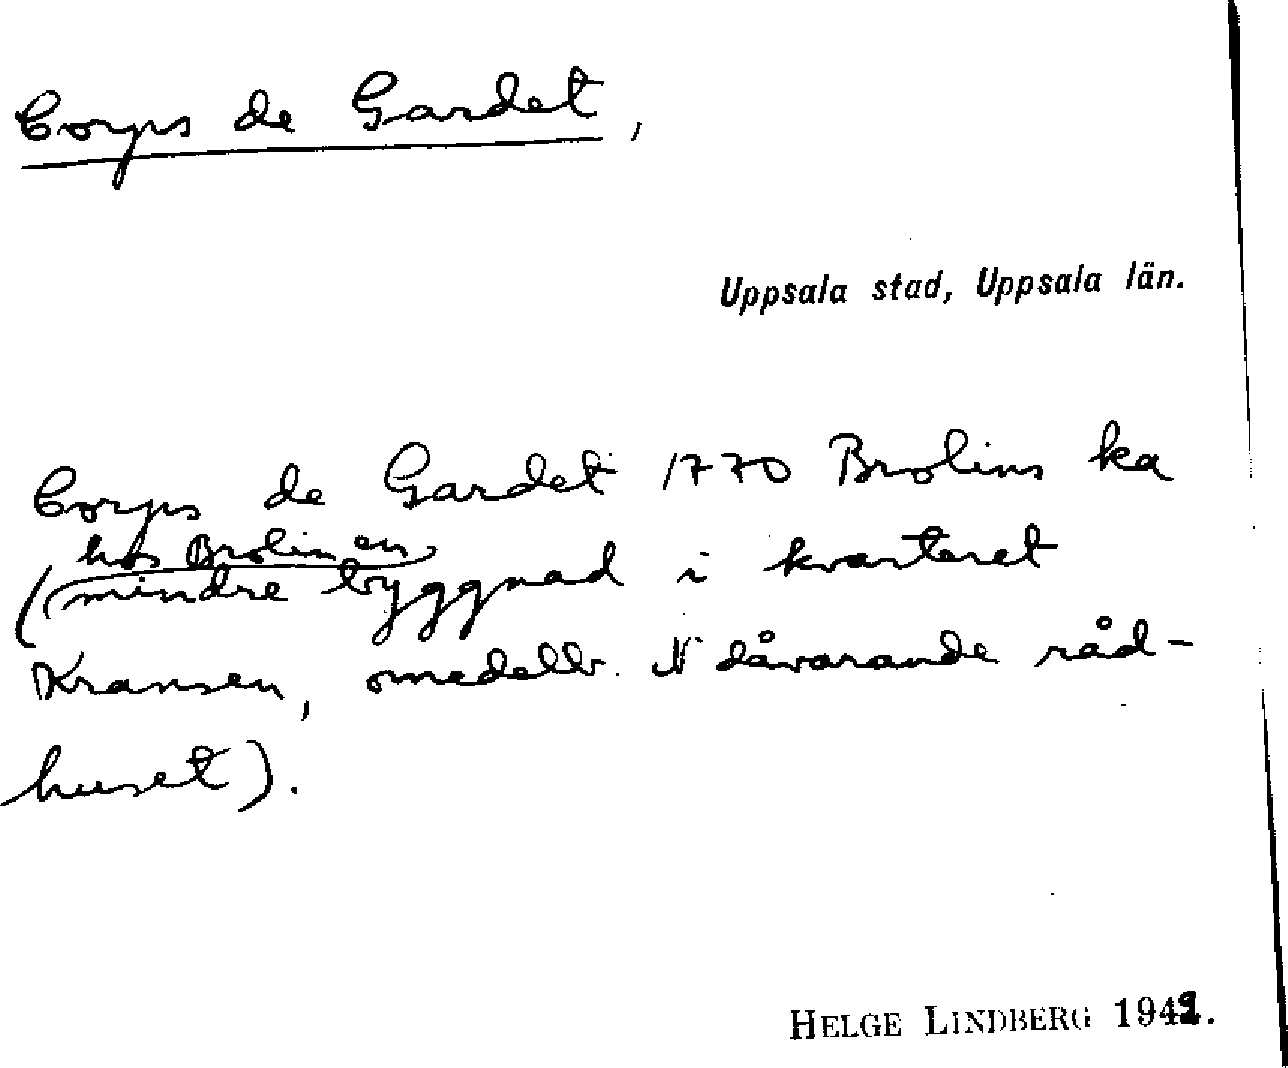 Corps de Gardet,
Uppsala stad, Uppsala län.
Corps de Gardet 1770 Brolins ka
hos Brolin en
(mindre byggnad i kvarteret
Kransen, omedelb. N dåvarande råd-
huset).
HELGE LINDBERG 194